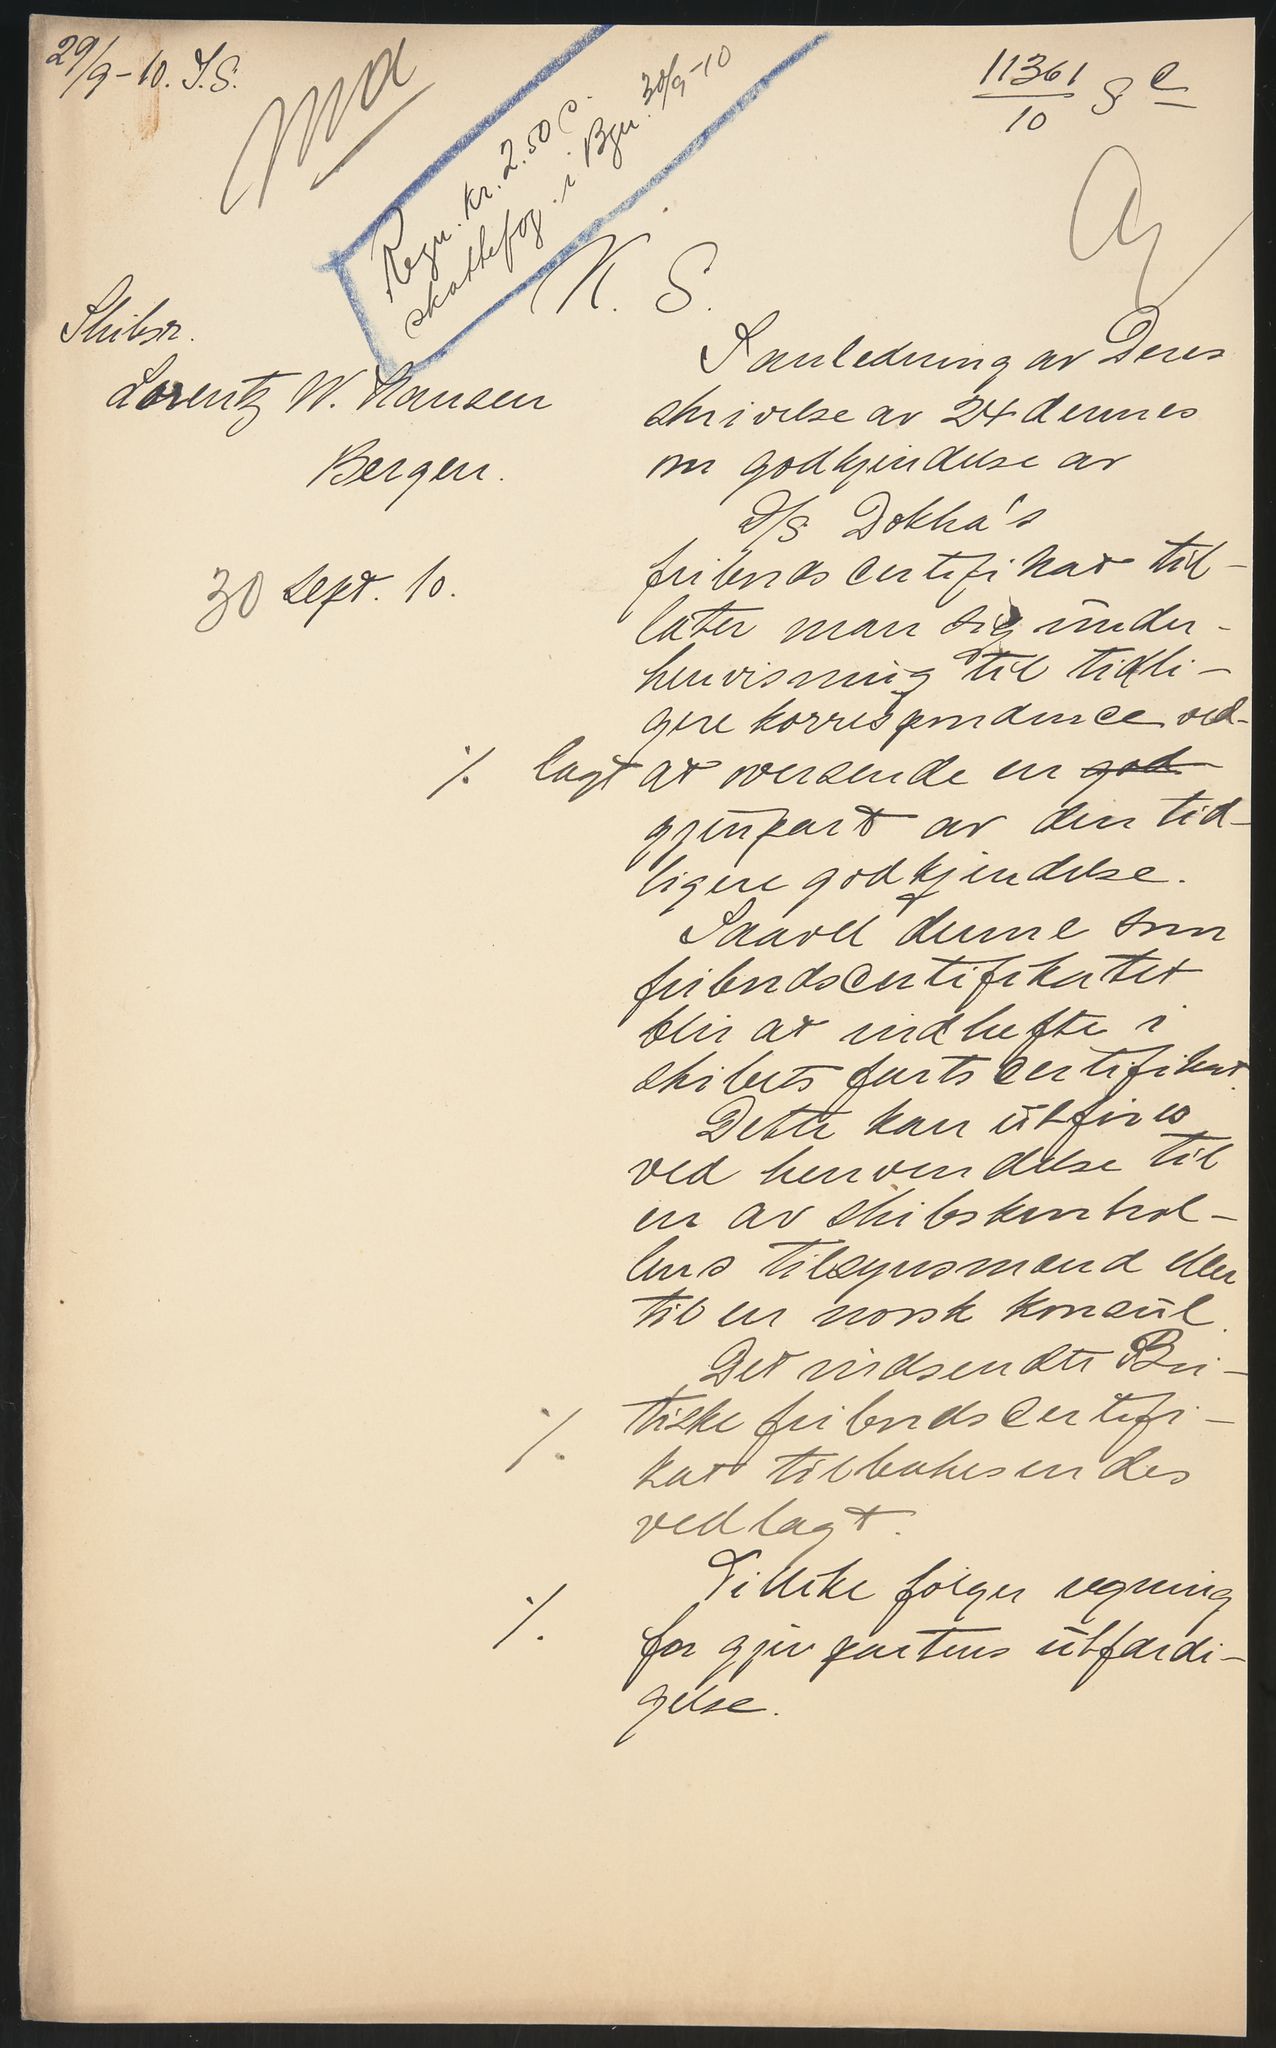 29/9-10. J.S.
11361/10 S C
Regn. kr. 2.50 C.
skattefog. i Bgn. 30/9-10
K. S.
Skibsr.
Lorentz W. Hansen
Bergen.
30 Sept. 10.
I anledning av Deres
skrivelse av 24 dennes
om godkjendelse av
D/S Dokka's
fribordscertifikat til-
later man sig under
henvisning til tidli-
gere korrespondence ved-
./. lagt at oversende en god
gjenpart av den tid-
ligere godkjendelse.
Saavel denne som
fribordscertifikatet
blir at indhefte i
skibets fartscertifikat.
Dette kan utføres
ved henvendelse til
en av skibskontrol-
lens tilsynsmænd eller
til en norsk konsul.
Det indsendte Bri-
./. tiske fribordscertifi-
kat tilbakesendes
vedlagt.
Tillike følger regning
./. for gjenpartens utfærdi-
gelse.